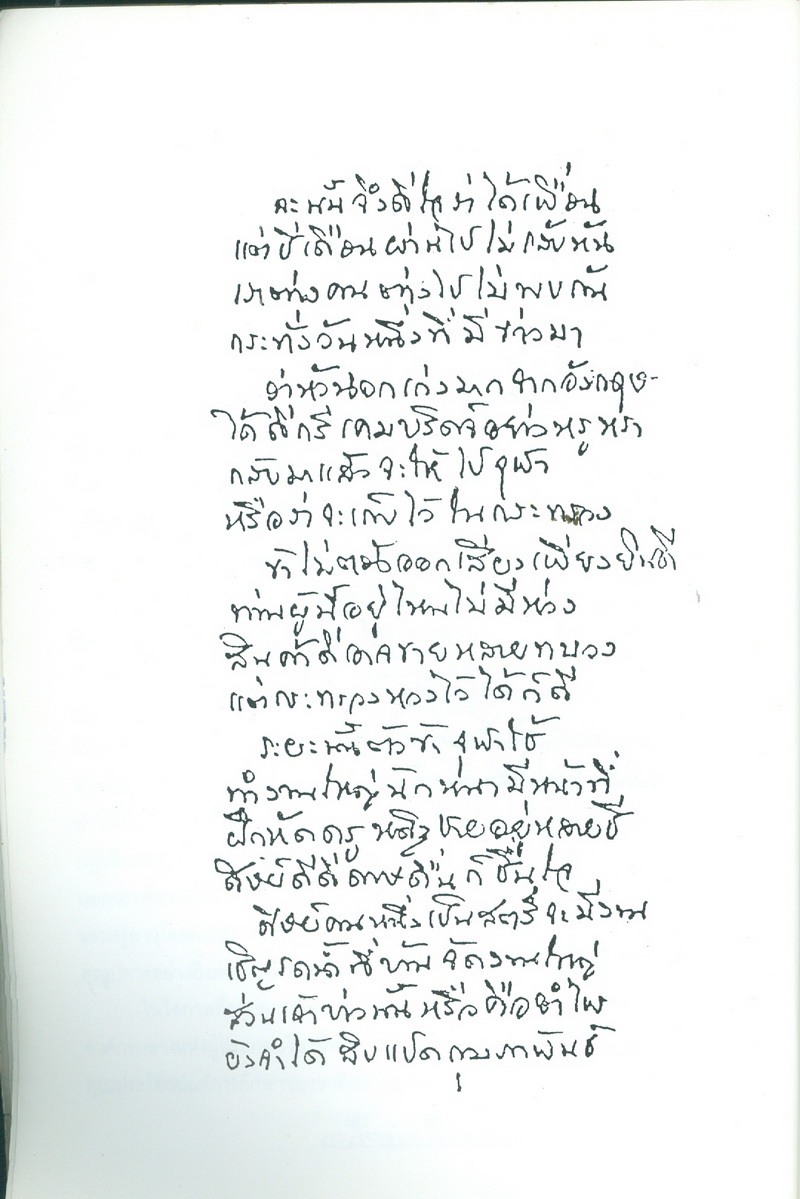 ฉะนั้นจึงดีใจว่าได้เพื่อน
แต่ปีเดือนผ่านไปไม่กลับหัน
เราต่างคนต่างไปไม่พบกัน
กระทั่งวันหนึ่งที่มีข่าวมา
ว่า เก่งมากจากอังกฤษ
ได้ดีกรีเคมบริดจ์อย่างหรูหรา
กลับมาแล้วจะให้ไปจุฬา
หรือว่าจะเก็บไว้ในกระทรวง
ข้าไม่ ออกเสียงเพียงยินดี
ท่านผู้นี้อยู่ไหนไม่มีห่วง
สินค้าดี ขายหลายทบวง
แต่กระทรวงหวงไว้ได้ก็ดี
ระยะนั้นตัวข้าจุฬาใช้
ทำงานใหญ่นักหนามีหน้าที่
ฝึกหัดครูหญิงชายอยู่หลายปี
ศิษย์ดีดีดาษดื่นก็ชื่นใจ
ศิษย์คนหนึ่งเป็นสตรีจะมีงาน
เชิญรดน้ำ จัดงานใหญ่
ส่วนเจ้าบ่าวนั้นหรือคืออำไพ
ยังจำได้สิบแปดกุมภาพันธ์